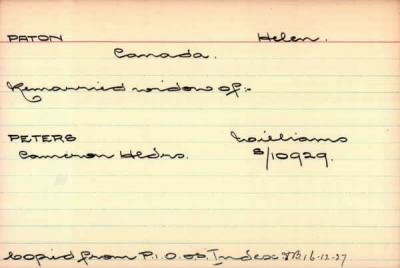 PATON Helen.
Canada.
Remarried widow of:-
PETERS Williams
Cameron Hldrs. S/10929.
Copied from P.I.O.o.S. Index 16-12-27